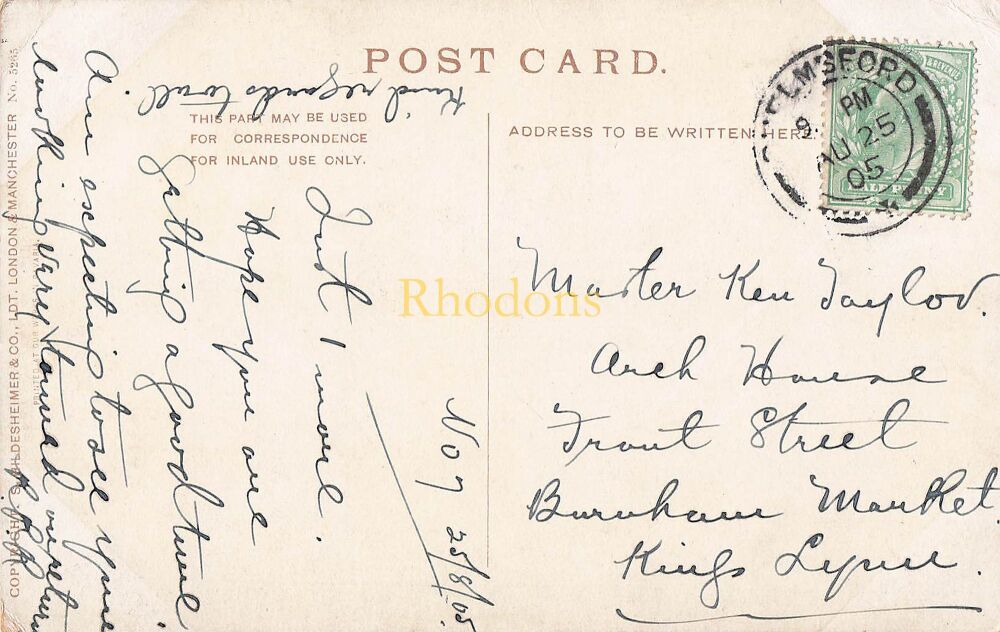 POST CARD.
THIS PART MAY BE USED
FOR CORRESPONDENCE
FOR INLAND USE ONLY.
ADDRESS TO BE WRITTEN HERE
CHELMSFORD
9. PM
AU 25
05
& REVENUE
HALFPENNY
No 7 25/8/05
Just 1 more.
Hope you are
getting a good time
Am expecting to see you
looking very tanned on return
Kind regards to all.
Master Ken Taylor.
Arch House
Front Street
Burnham Market.
Kings Lynn.
COPYRIGHT S. HILDESHEIMER & CO., LDT. LONDON & MANCHESTER No. 5265
PRINTED AT OUR WORKS
Rhodons